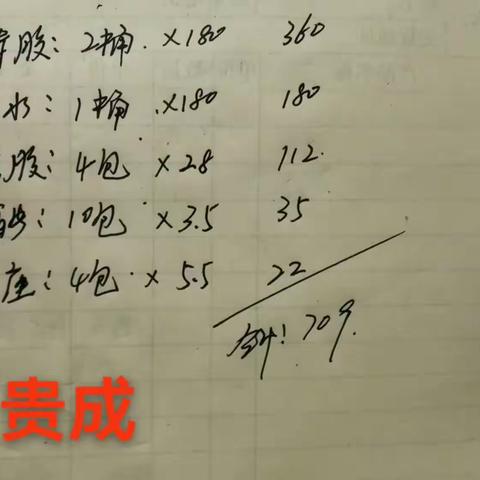 胶: 2桶. ×180 360
水: 1桶 ×180 180
胶: 4包 ×28 112.
10包 ×3.5 35
座: 4包 × 5.5 22
合计: 709.
贵成